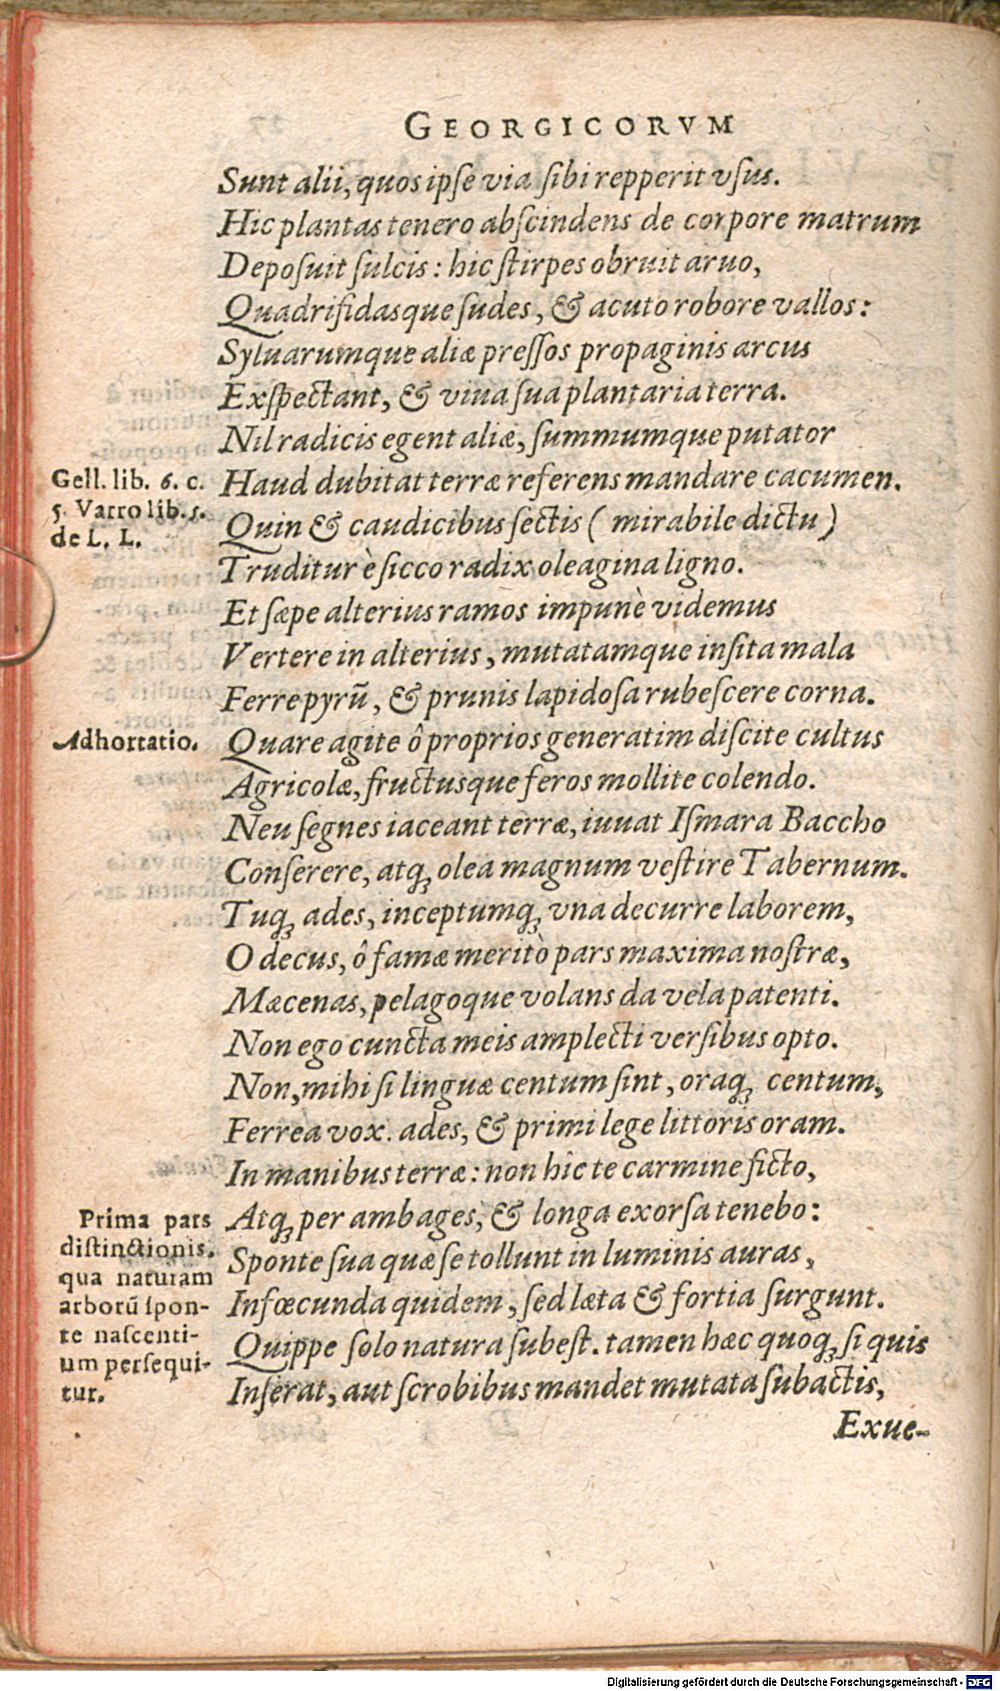 GEORGICORVM
Sunt alii, quos ipſe via ſibi repperit vſus.
Hic plantas tenero abſcindens de corpore matrum
Depoſuit ſulcis: hic ſtirpes obruit aruo,
Quadrifidasque ſudes, & acuto robore vallos:
Syluarumque aliæ preſſos propaginis arcus
Exſpectant, & viua ſua plantaria terra.
Nil radicis egent aliæ, ſummumque putator
Gell. lib. 6. c.
5. Varro lib. 5.
de L. L.
Haud dubitat terræ referens mandare cacumen.
Quin & caudicibus ſectis ( mirabile dictu )
Truditur è ſicco radix oleagina ligno.
Et ſæpe alterius ramos impunè videmus
Vertere in alterius, mutatamque inſita mala
Ferre pyrũ, & prunis lapidoſa rubeſcere corna.
Adhortatio.
Quare agite ô proprios generatim diſcite cultus
Agricolæ, fructusque feros mollite colendo.
Neu ſegnes iaceant terræ, iuuat Iſmara Baccho
Conſerere, atq; olea magnum veſtire Tabernum.
Tuq; ades, inceptumq; vna decurre laborem,
O decus, ô famæ meritò pars maxima noſtræ,
Mæcenas, pelagoque volans da vela patenti.
Non ego cuncta meis amplecti verſibus opto.
Non, mihi ſi linguæ centum ſint, oraq; centum,
Ferrea vox. ades, & primi lege littoris oram.
In manibus terræ: non hîc te carmine ficto,
Prima pars
diſtinctionis,
qua naturam
arborũ ſpon-
te naſcenti-
um perſequi-
tur.
Atq; per ambages, & longa exorſa tenebo:
Sponte ſua quæ ſe tollunt in luminis auras,
Infœcunda quidem, ſed læta & fortia ſurgunt.
Quippe ſolo natura ſubeſt. tamen hæc quoq; ſi quis
Inſerat, aut ſcrobibus mandet mutata ſubactis,
Exue-
Digitalisierung gefördert durch die Deutsche Forschungsgemeinschaft - DFG